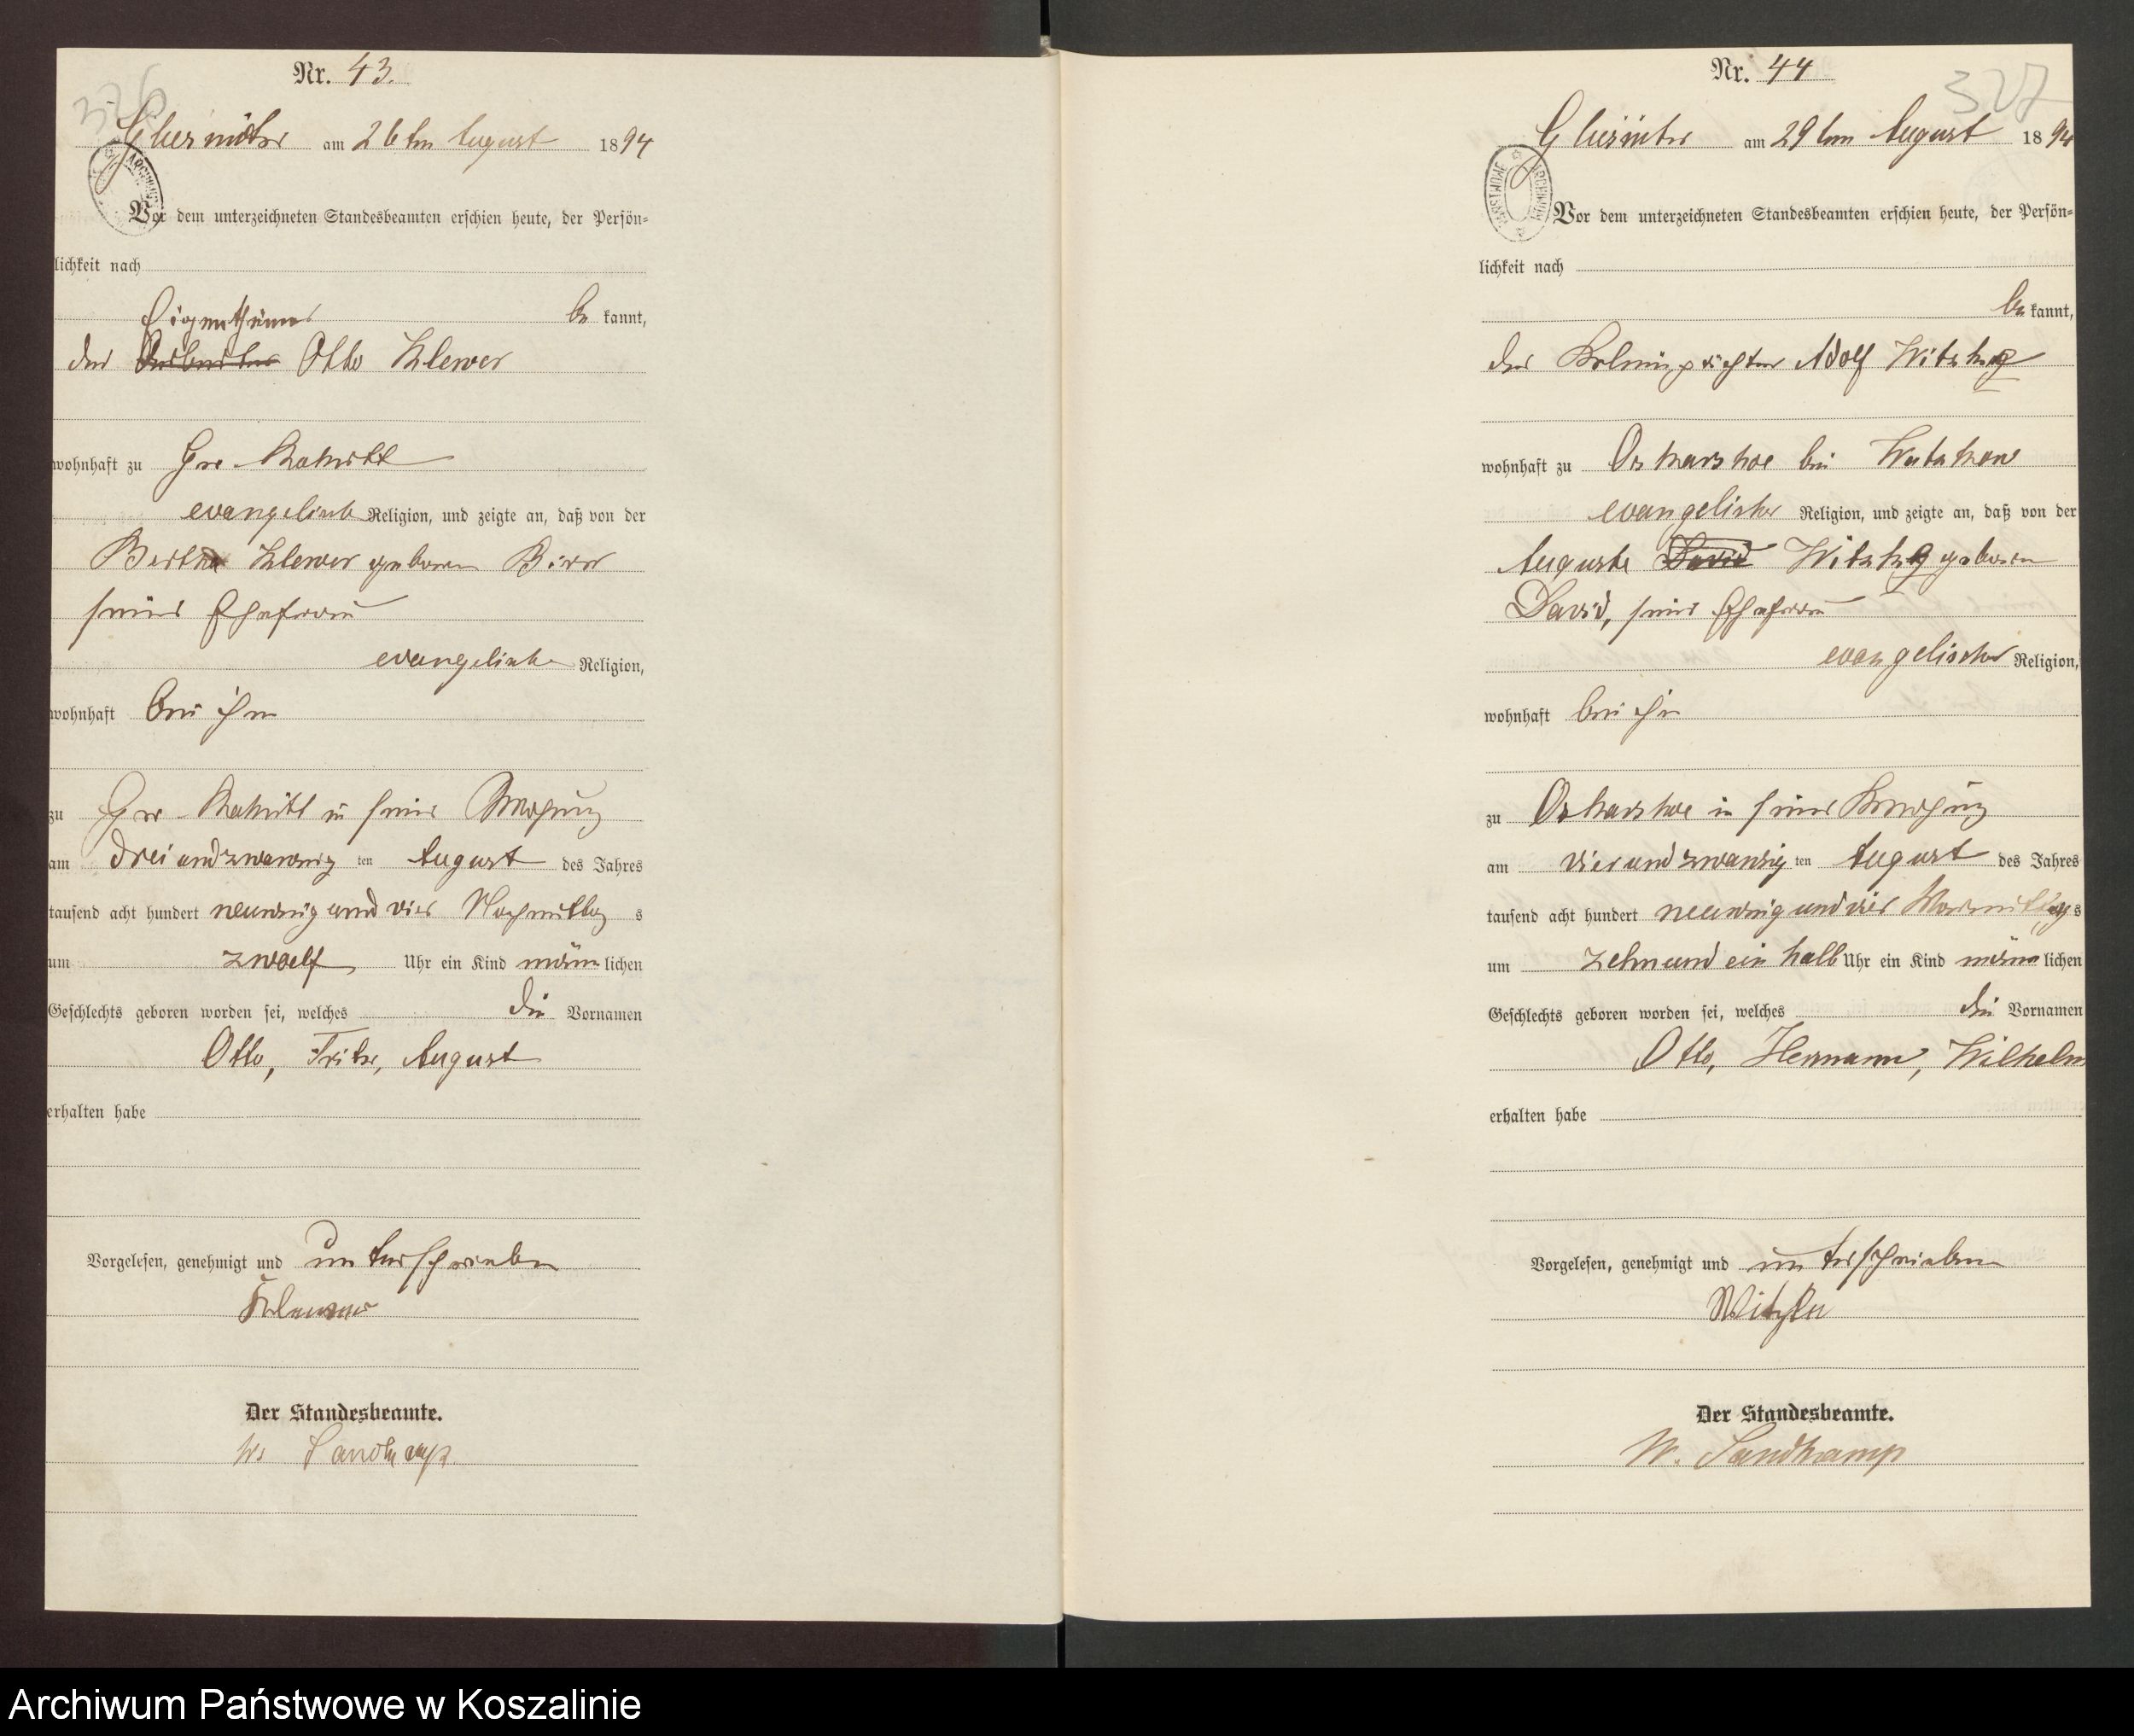 Nr. 43.
326
am 26ten August 1894
Vor dem unterzeichneten Standesbeamten erschien heute, der Persön=
lichkeit nach
Eigenthümer be kannt,
der Otto Klewer
wohnhaft zu Gr.
evangelisch Religion, und zeigte an, daß von der
Bertha Klewer geboren
seiner Ehefrau
evangelisch Religion,
wohnhaft bei ihm
zu Gr. in seiner Wohnung
am dreiundzwanzig ten August des Jahres
tausend acht hundert neunzig und vier Nachmittag s
um zwoelf Uhr ein Kind männ lichen
Geschlechts geboren worden sei, welches die Vornamen
Otto, Fritz, August
erhalten habe
Vorgelesen, genehmigt und unterschrieben
Klewer
Der Standesbeamte.
W. Sandkamp
Nr. 44
327
am 29ten August 1894
ARCHIWUM PAŃSTWOWE
Vor dem unterzeichneten Standesbeamten erschien heute, der Persön=
lichkeit nach
be kannt,
der Adolf Witzke
wohnhaft zu bei
evangelischer Religion, und zeigte an, daß von der
Auguste David Witzke geboren
David, seiner Ehefrau
evangelischer Religion,
wohnhaft bei ihm
zu in seiner Wohnung
am vierundzwanzig ten August des Jahres
tausend acht hundert neunzig und vier Vormittag s
um zehn und ein halb Uhr ein Kind männ lichen
Geschlechts geboren worden sei, welches die Vornamen
Otto, Hermann, Wilhelm
erhalten habe
Vorgelesen, genehmigt und unterschrieben
Witzke
Der Standesbeamte.
W. Sandkamp
Archiwum Państwowe w Koszalinie